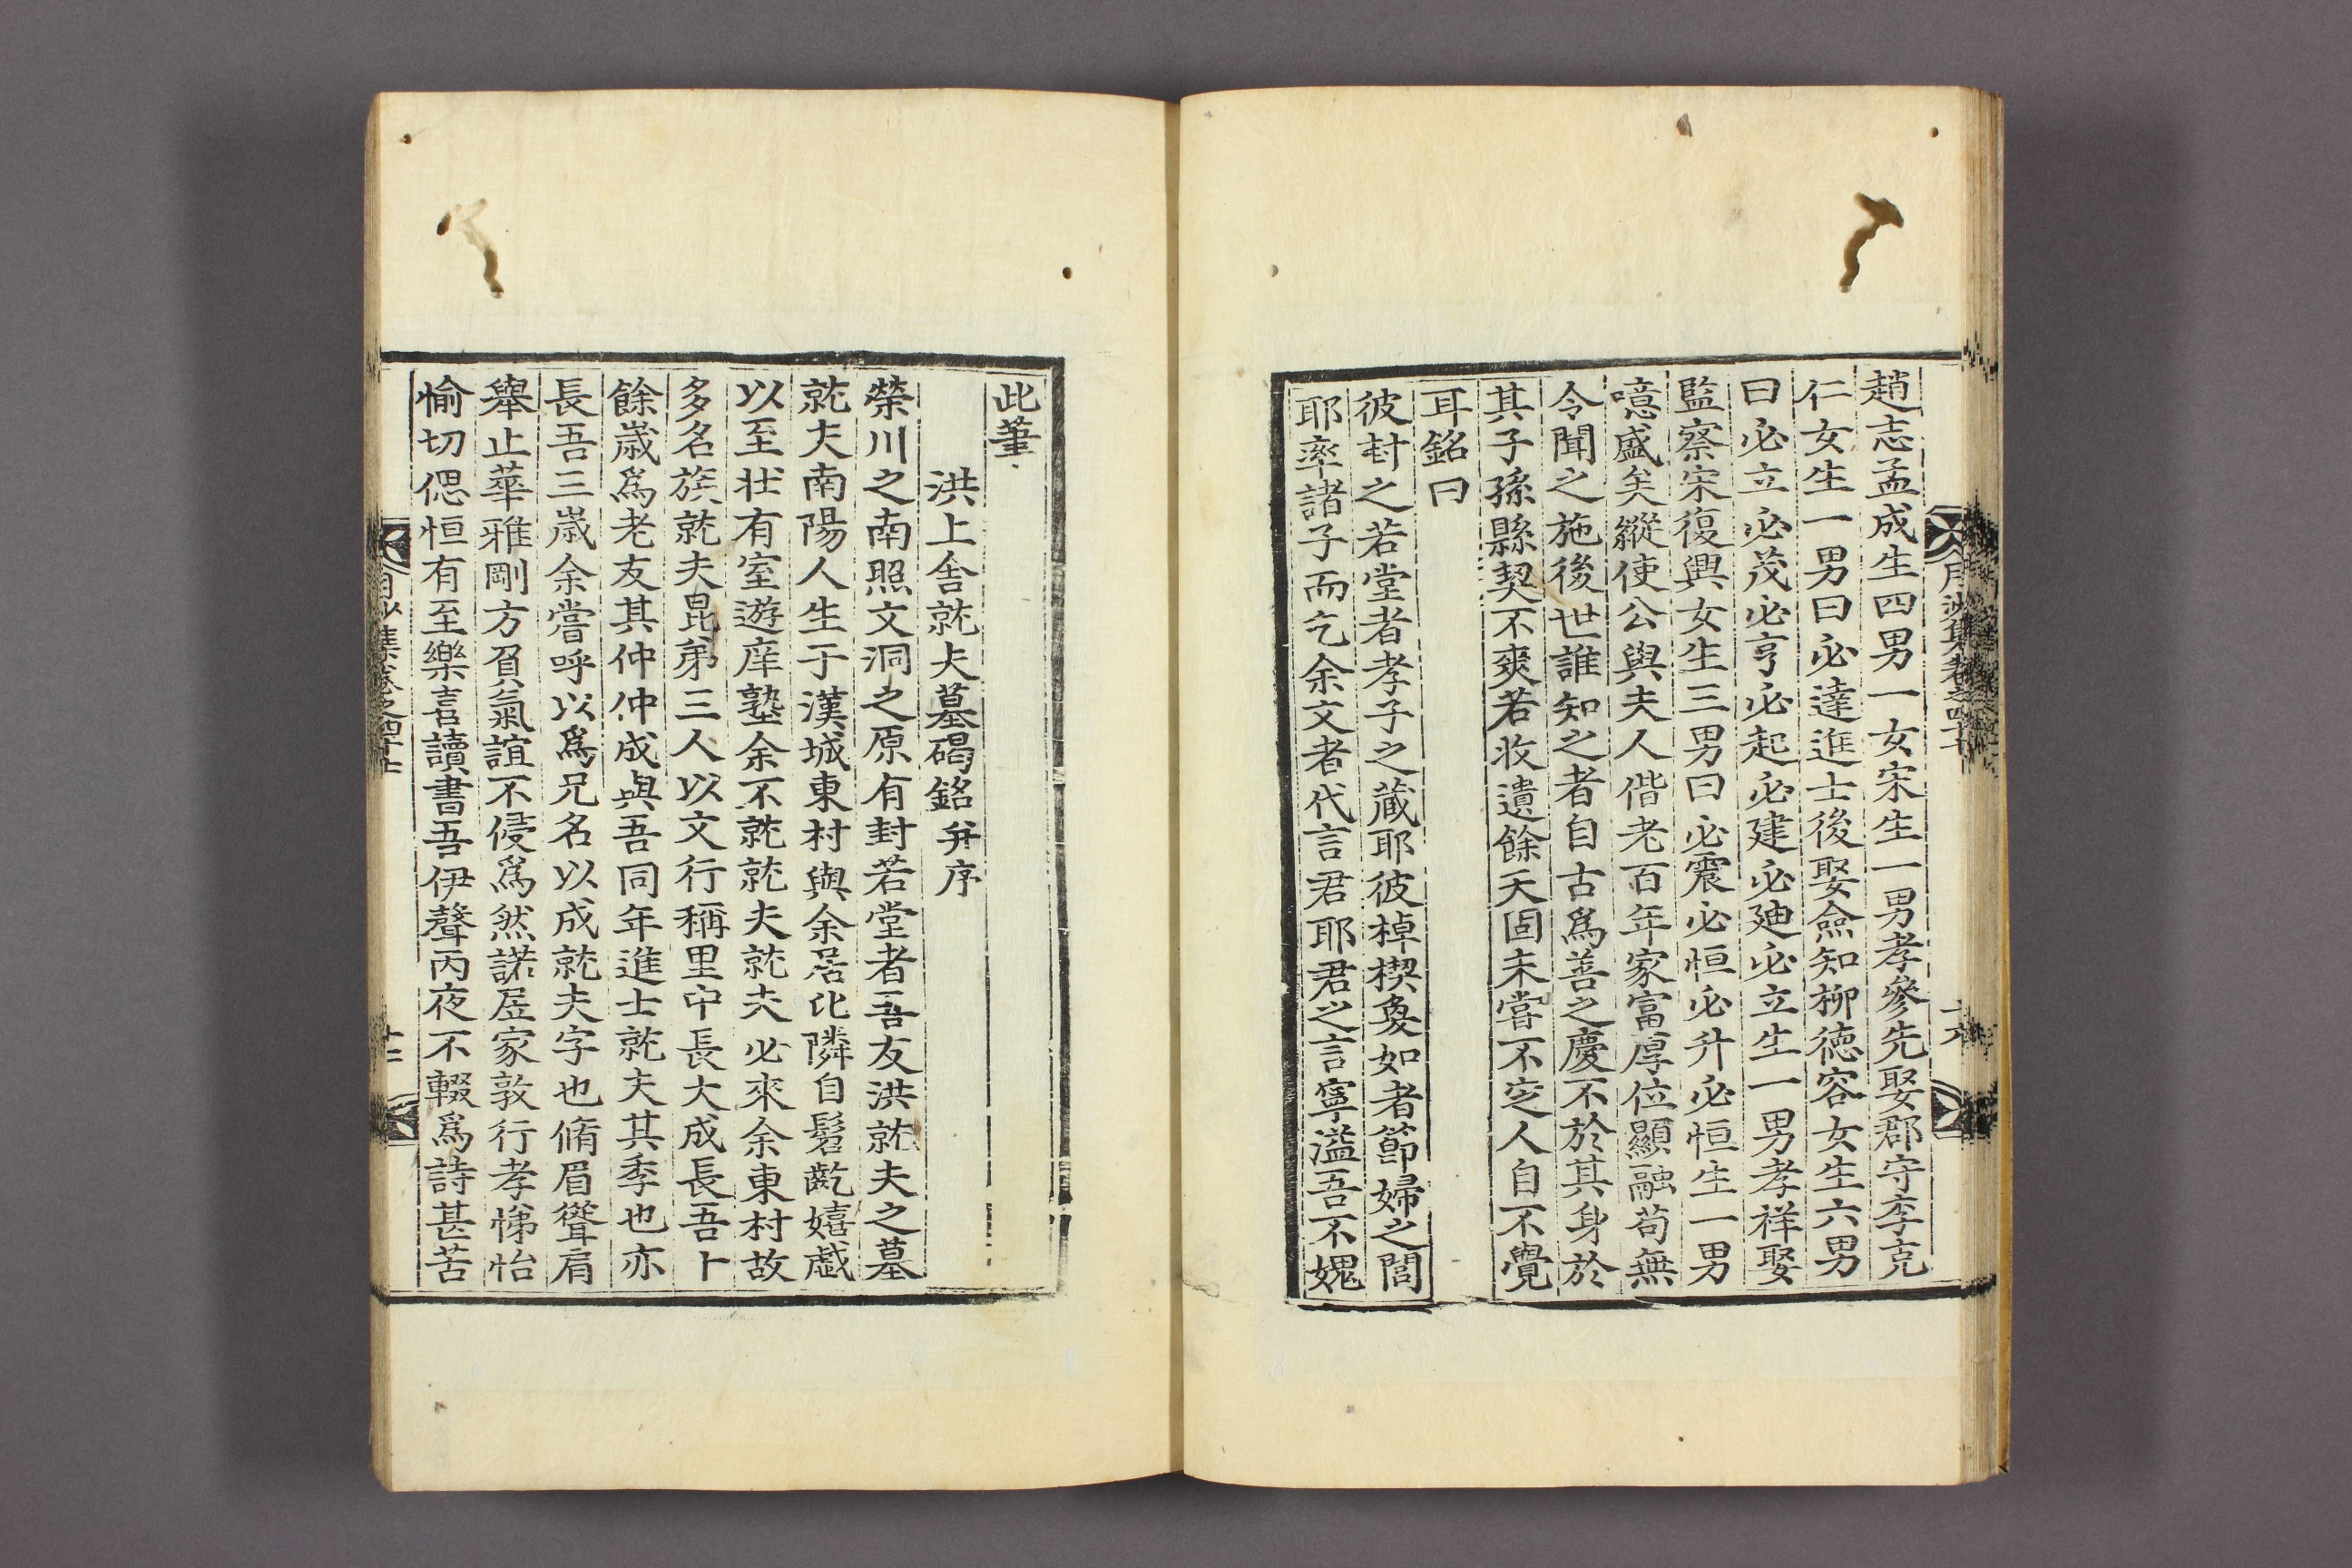 趙志孟成生四男一女宋生一男孝參先娶郡守李克
仁女生一男曰必達進士後娶僉知柳德容女生六男
曰必立必茂必亨必起必建必廸必立生一男孝祥娶
監察宋復興女生三男曰必震必恒必升必恒生一男
噫盛矣縱使公與夫人偕老百年家富厚位顯融苟無
令聞之施後世誰知之者自古爲善之慶不於其身於
其子孫縣契不爽若收遺餘天固未嘗不定人自不覺
耳銘曰
彼封之若堂者孝子之藏耶彼棹楔奐如者節婦之閭
耶率諸子而乞余文者代言君耶君之言寧溢吾不媿
此筆
洪上舍就夫墓碣銘 幷序
榮川之南照文洞之原有封若堂者吾友洪就夫之墓
就夫南陽人生于漢城東村與余居比隣自髫齔嬉戱
以至壯有室遊庠塾余不就就夫就夫必來余東村故
多名族就夫昆弟三人以文行稱里中長大成長吾卜
餘歲爲老友其仲仲成與吾同年進士就夫其季也亦
長吾三歲余嘗呼以爲兄名以成就夫字也脩眉聳肩
擧止華雅剛方負氣誼不侵爲然諾居家敦行孝悌怡
愉切偲恒有至樂喜讀書吾伊聲丙夜不輟爲詩甚苦